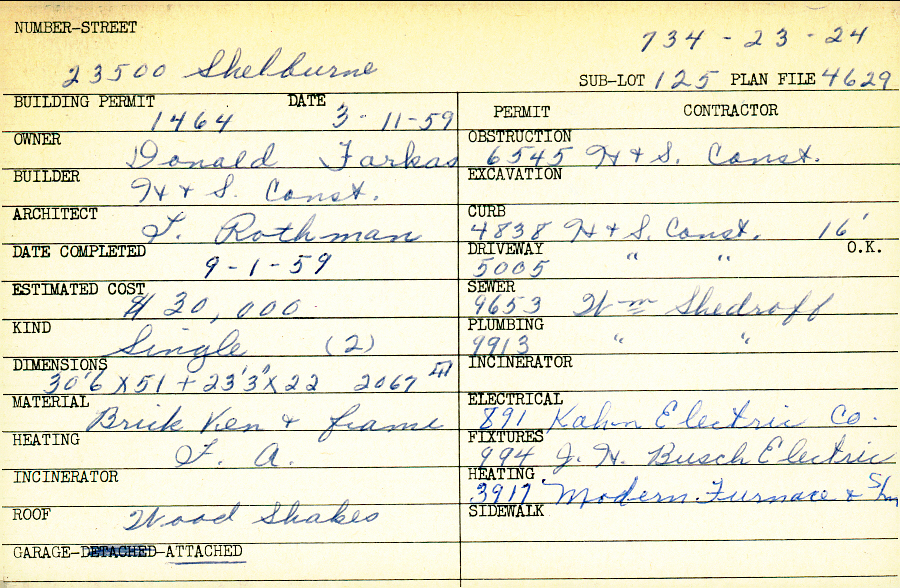 NUMBER-STREET
734-23-24
23500 Shelburne
SUB-LOT 125 PLAN FILE 4629
BUILDING PERMIT 1464 DATE 3-11-59
PERMIT CONTRACTOR
OWNER Donald Farkas
OBSTRUCTION 6545 H & S. Const.
BUILDER H & S. Const.
EXCAVATION
ARCHITECT T. Rothman
CURB 4838 H & S. Const. 16'
DATE COMPLETED 9-1-59
DRIVEWAY 5005 " " O.K.
ESTIMATED COST $ 30,000
SEWER 9653 Wm Shedroff
KIND Single (2)
PLUMBING 9913 " "
DIMENSIONS 30'6 X 51 + 23'3" X 22 2067
INCINERATOR
MATERIAL Brick Ven & frame
ELECTRICAL 891 Kahn Electric Co.
HEATING F. A.
FIXTURES 994 J. H. Busch Electric
INCINERATOR
HEATING 3917 Modern Furnace &
ROOF Wood Shakes
SIDEWALK
GARAGE-DETACHED-ATTACHED